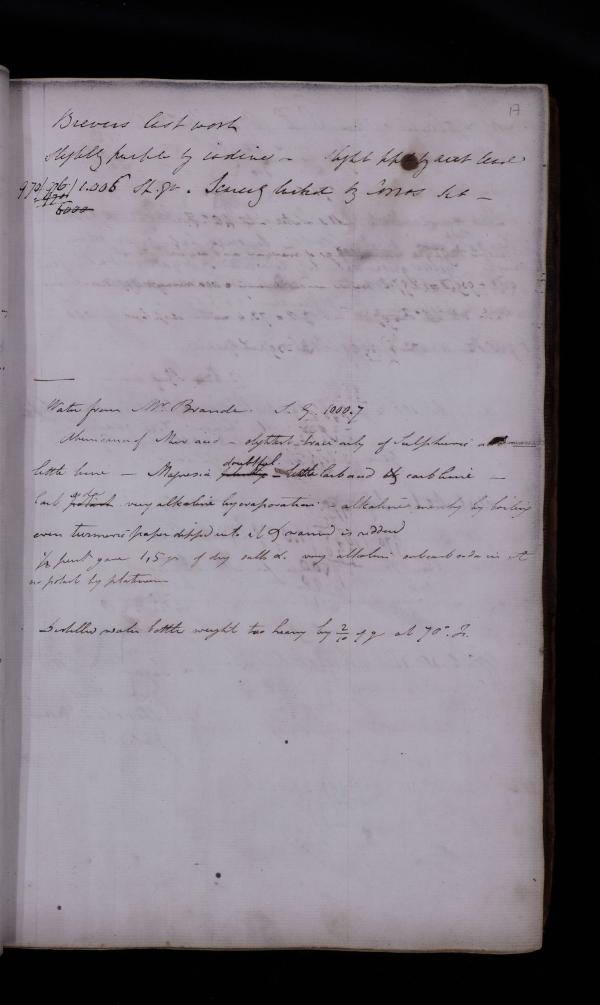 17
Brewers last wort
Slightly purple by iodine - slight ppt by acet lead
970/976/1.006 Sp. gr. Scarcely by Corros Sub -
6000
Water from Mr. Brande. S. G. 1000.7
of Mur acid - trace only of Sulphuric
little lime - Magnesia doubtful - little carb acid & carb lime -
Carb soda very alkaline by evaporation - alkaline merely by boiling
even turmeric paper dipped into it & warmed is reddened
½ pint gave 1,5 gr of dry salts &c. very alkaline subcarb soda in it
no potash by platinum
Distilled water bottle weight too heavy by 2/10 of gr at 70° F.